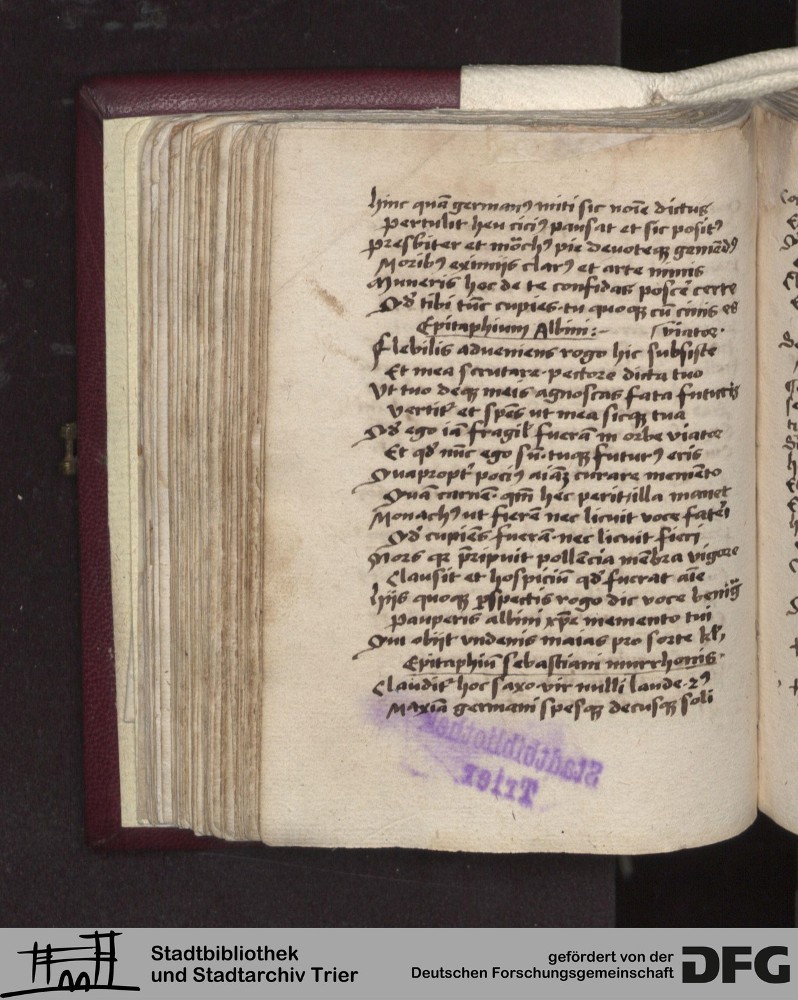 hinc quā germanꝰ miti sic noīe dictus
pertulit heu ciciꝰ pausat et sic positꝰ
presbiter et mōchꝰ pie devoteqꝫ gemēdꝰ
Moribꝰ eximijs clarꝰ et arte nimis
Muneris hec de te confidas poscē certe
Qd̄ tibi tūc cupies tu quoqꝫ cū cinis es
Epitaphium Albini :~ viator
Flebilis adveniens rogo hic subsiste
Et mea scrutare pectore dicta tuo
Ut tuo deqꝫ meis agnoscas fata futuris
vertit̄ et spēs ut mea sicqꝫ tua
Qd̄ ego iā fragil̄ fuerā in orbe viator
Et qd̄ nūc ego sū tuqꝫ futurꝰ eris
Quapropt̄ pociꝰ aīaꝫ curare memēto
Quā carnē qm̄ hec perit illa manet
Monachꝰ ut fierē nec licuit voce fateri
Qd̄ cupiēs fuerā nec licuit fieri
Mors qꝫ p̄ripuit pollēcia mēbra vigore
Clausit et hospiciū qd̄ fuerat aīe
hijs quoqꝫ ꝑspectis rogo dic voce beniḡ
pauperis albini xp̄e memento tui
Qui obijt undenis maias pro sorte kl̄
Epitaphiū sebastiani murrhonis
Claudit̄ hoc saxo vir nulli laude 2ꝰ
Maxīa germani spesqꝫ decusqꝫ soli
Stadtbibliothek
Trier
Stadtbibliothek
und Stadtarchiv Trier
gefördert von der
Deutschen Forschungsgemeinschaft
DFG